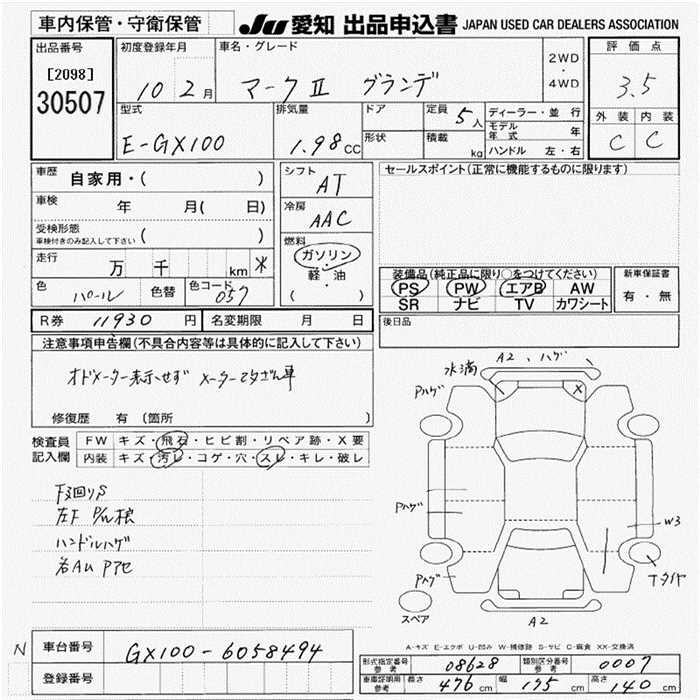 車内保管・守衛保管
JU 愛知 出品申込書 JAPAN USED CAR DEALERS ASSOCIATION
出品番号
[2098]
30507
初度登録年月
10 2月
車名・グレード
マークⅡ グランデ
2WD
・
4WD
評価点
3.5
外装 内装
C C
型式
E-GX100
排気量
1.98CC
ドア
形状
定員 5人
積載 kg
ディーラー・並行
モデル年式 年
ハンドル 左・右
車歴 自家用・( )
車検 年 月( 日)
受検形態
車検付きのみ記入して下さい ( )
走行 万 千 km *
色 パール 色替 色コード 057
シフト
AT
冷房
AAC
燃料
ガソリン
軽・油
( )
セールスポイント(正常に機能するものに限ります)
装備品(純正品に限り○をつけてください)
PS PW エアB AW
SR ナビ TV カワシート
新車保証書
有・無
後日品
R券 11930 円 名変期限 月 日
注意事項申告欄(不具合内容等は具体的に記入して下さい)
オドメーター表示せず メーター改ざん車
修復歴 有(箇所 )
検査員
記入欄
FW キズ・飛石・ヒビ割・リペア跡・X要
内装 キズ・汚レ・コゲ・穴・スレ・キレ・破レ
下廻りS
左F
ハンドルハゲ
水滴
A2、ハゲ
X
Pハゲ
Pハゲ
Pハゲ
W3
Tタイヤ
スペア
A2
A-キズ E-エクボ U-凹み W-補修跡 S-サビ C-腐食 XX-交換済
N
車台番号 GX100-6058494
登録番号
形式指定番号 参考 08628 類別区分番号 参考 0007
車庫証明用 参考 長さ 476cm 幅 175cm 高さ 140cm